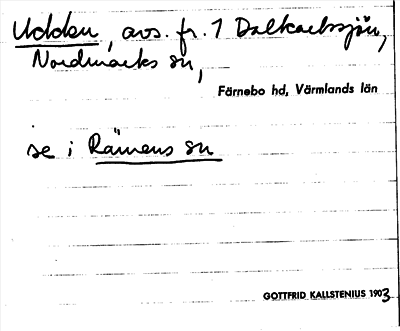 Udden, avs. fr. 1 Dalkarlssjön,
Nordmarks sn,
Färnebo hd, Värmlands län
se i Rämens sn
GOTTFRID KALLSTENIUS 1903